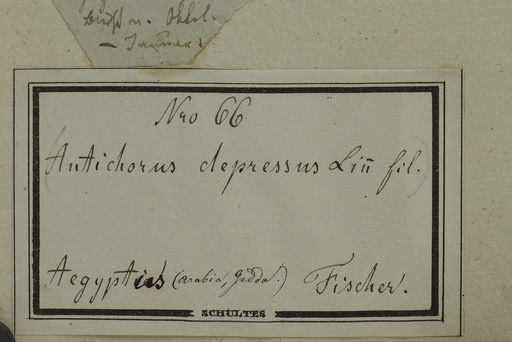 blüht u.
– Januar.
Nro 66
Antichorus depressus Lin̄ fil.
Aegyptus (arabia, Gedda.) Fischer.
SCHULTES